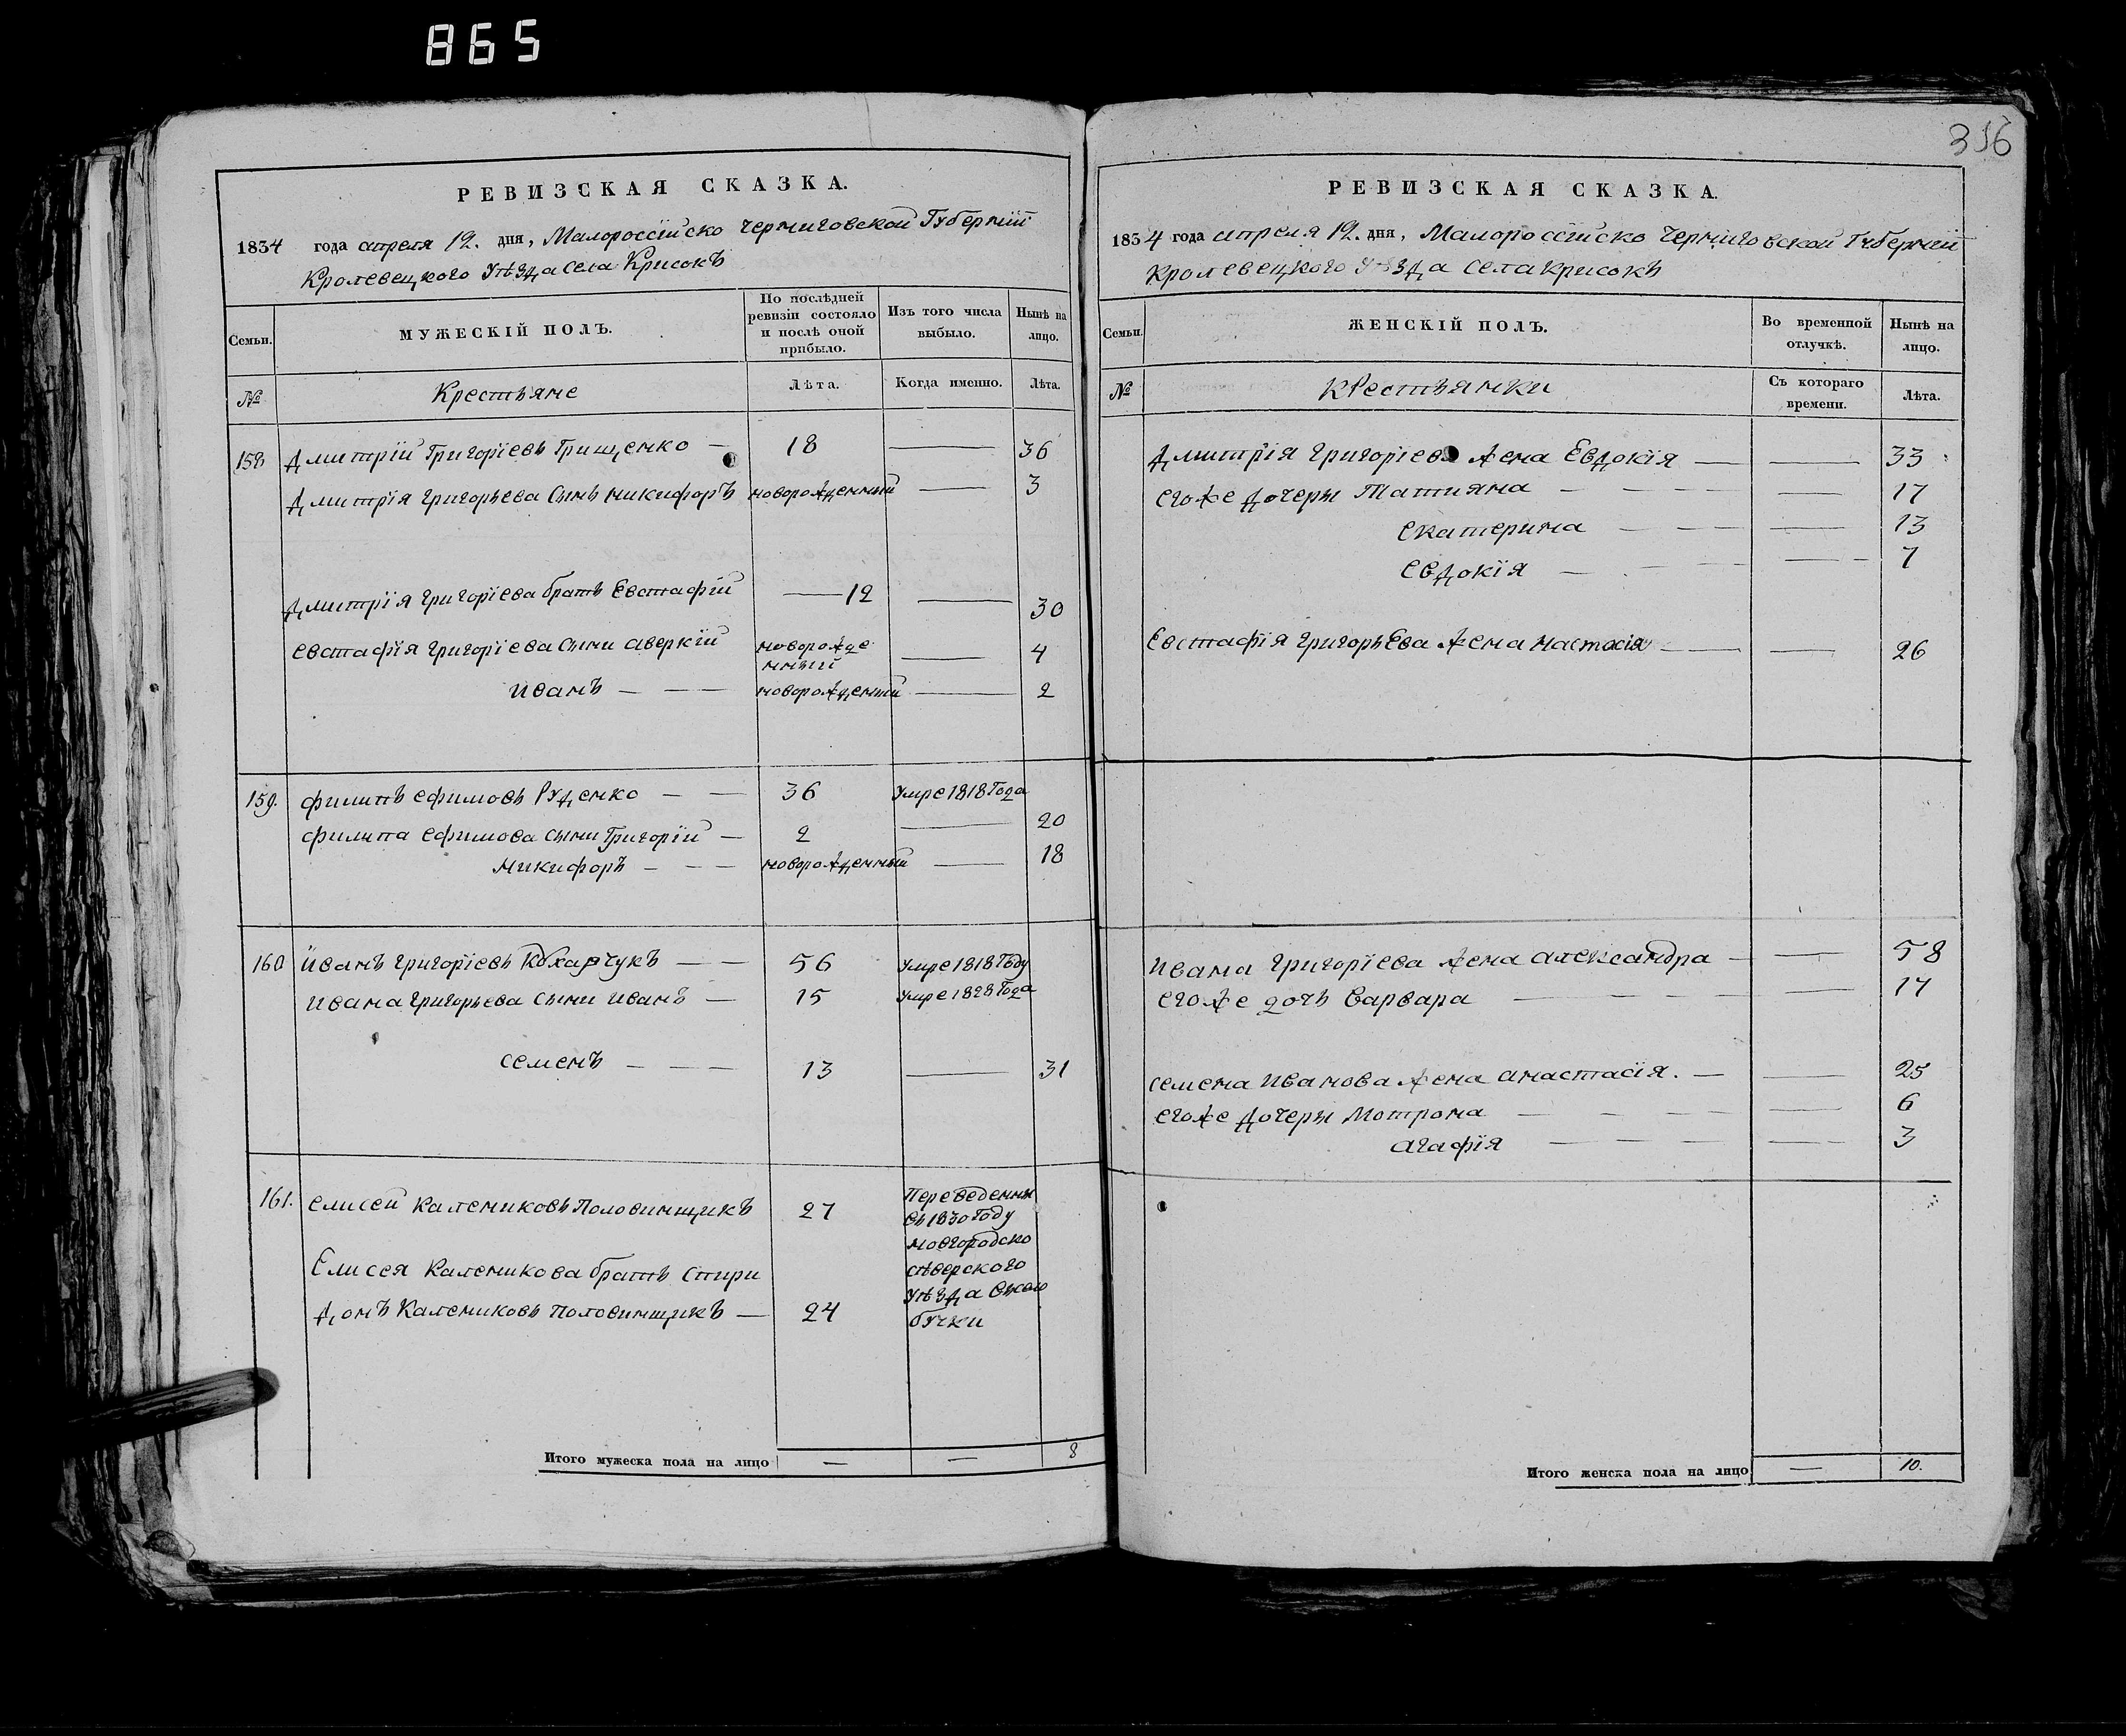 865
316
РЕВИЗСКАЯ СКАЗКА.
1834 года апреля 12. дня, Малороссійско Черниговской Губерніи
Кролевецкого Уѣзда Села Крисокъ
Семьи. МУЖЕСКІЙ ПОЛЪ. По послѣдней ревизіи состояло и послѣ оной прибыло. Изъ того числа выбыло. Нынѣ на лицо.
№ Крестьяне Лѣта. Когда именно. Лѣта.
158 Дмитрій Григоріевъ Грищенко — 18 — 36
Дмитрія Григорьева Сынъ Никифоръ новорожденный — 3
Дмитрія Григоріева братъ Евстафій — 12 — 30
Евстафія Григоріева Сыни Аверкій новорожде
нный — 4
Иванъ — — — новорожденный — 2
159. Филипъ Ефимовъ Руденко — — 36 Умре 1818 Года
Филипа Ефимова сыни Григорій — 2 — 20
Никифоръ — — — новорожденный — 18
160 Иванъ Григоріевъ Кохарчукъ — — 56 Умре 1818 Году
Ивана Григорьева сыни Иванъ — 15 Умре 1828 Года
Семенъ — — — 13 — 31
161. Елисей Калениковъ Половинщикъ 27 Переведенны
въ 1830 Году
Новгородско
Елисея Каленикова братъ Спири
сѣверского
Уѣзда
донъ Калениковъ половинщикъ — 24
бучки
Итого мужеска пола на лицо — — 8
РЕВИЗСКАЯ СКАЗКА.
1834 года апреля 12. дня, Малороссійско Черниговской Губерніи
Кролевецкого Уѣзда Села Крисокъ
Семьи. ЖЕНСКІЙ ПОЛЪ. Во временной отлучкѣ. Нынѣ на лицо.
№ Крестьянки Съ котораго времени. Лѣта.
Дмитрія Григоріева жена Евдокія — — 33
егоже дочеры Татияна — — — — 17
Екатерина — — — — 13
Евдокія — — — — 7
Евстафія Григорьева жена Настасія — — 26
Ивана Григоріева жена Александра — — 58
егоже дочь Варвара — — — — 17
Семена Иванова жена Анастасія. — — 25
егоже дочеры Мотрона — — — — 6
Агафія — — — — 3
Итого женска пола на лицо — 10.